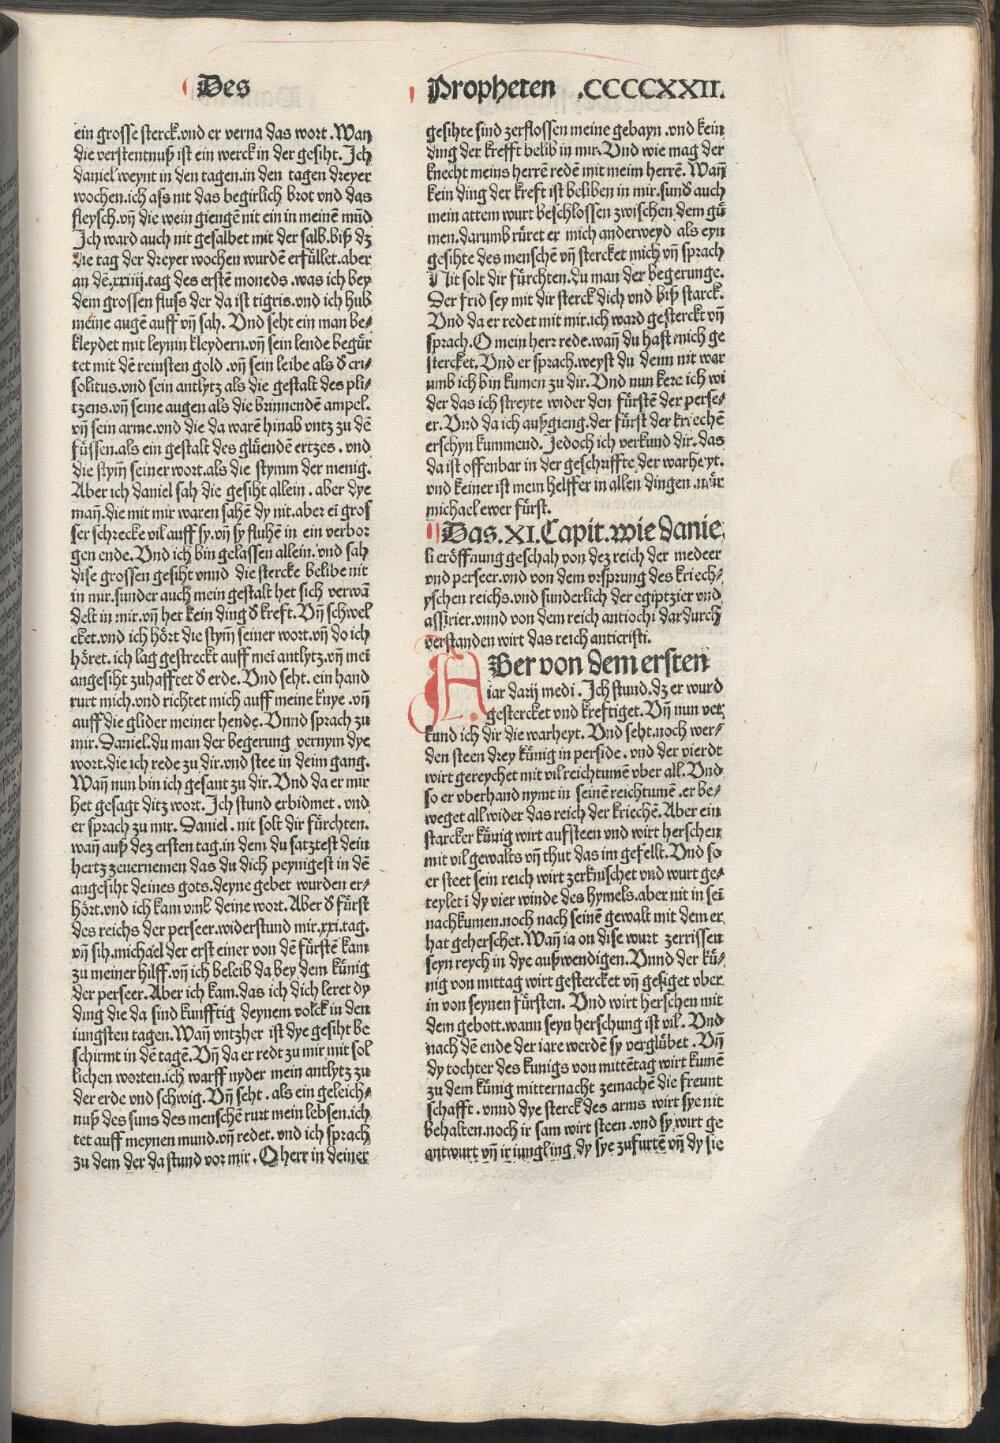 Des
Propheten .CCCCXXII.
ein grosse sterck.vnd er verna das wort.Wan
die verstentnuß ist ein werck in der gesiht. Ich
daniel weynt in den tagen.in den tagen dreyer
wochen.ich ass nit das begirlich brot vnd das
fleysch.vn̄ die wein giengē nit ein in meinē mūd
Ich ward auch nit gesalbet mit der salb.biß dz
die tag der dreyer wochen wurdē erfüllet.aber
an dē.xxiiij.tag des erstē moneds.was ich bey
dem grossen fluss der da ist tigris.vnd ich hub
meine augē auff vn̄ sah. Vnd seht ein man be⸗
kleydet mit leynin kleydern.vn̄ sein lende begür
tet mit dē reinsten gold.vn̄ sein leibe als d̄ cri⸗
solitus.vnd sein antlytz als die gestalt des pli⸗
tzens.vn̄ seine augen als die brinnendē ampel.
vn̄ sein arme.vnd die da warē hinab vntz zu dē
füssen.als ein gestalt des glüendē ertzes.vnd
die stym̄ seiner wort.als die stymm der menig.
Aber ich daniel sah die gesiht allein.aber dye
man̄.die mit mir waren sahē dy nit.aber ei gros
ser schrecke vil auff sy.vn̄ sy fluhē in ein verbor
gen ende.Vnd ich bin gelassen allein.vnd sah
dise grossen gesiht vnnd die stercke belibe nit
in mir.sunder auch mein gestalt het sich verwā
delt in mir.vn̄ het kein ding d̄ kreft. Vn̄ schwel
cket.vnd ich hört die stym̄ seiner wort.vn̄ do ich
höret.ich lag gestreckt auff mei antlytz.vn̄ mei
angesiht zuhafftet d̄ erde.Vnd seht.ein hand
rurt mich.vnd richtet mich auff meine knye.vn̄
auff die glider meiner hende. Vnnd sprach zu
mir.Daniel.du man der begerung vernym dye
wort.die ich rede zu dir.vnd stee in deim gang.
Wan̄ nun bin ich gesant zu dir.Vnd da er mir
het gesagt ditz wort.Ich stund erbidmet.vnd
er sprach zu mir.Daniel.nit solt dir fürchten.
wan̄ auß dez ersten tag.in dem du satztest dein
hertz zeuernemen das du dich peynigest in dē
angesiht deines gots.deyne gebet wurden er⸗
hört.vnd ich kam vmb deine wort.Aber d̄ fürst
des reichs der perseer.widerstund mir.xxi.tag.
vn̄ sih.michael der erst einer von dē fürstē kam
zu meiner hilff.vn̄ ich beleib da bey dem künig
der perseer.Aber ich kam.das ich dich leret dy
ding die da sind kunfftig deynem volck in den
iungsten tagen.Wan̄ vntzher ist dye gesiht be
schirmt in dē tagē.Vn̄ da er redt zu mir mit sol
lichen worten.ich warff nyder mein antlytz zu
der erde vnd schwig.Vn̄ seht.als ein geleich⸗
nuß des suns des menschē rurt mein lebsen.ich
tet auff meynen mund.vn̄ redet.vnd ich sprach
zu dem der da stund vor mir.O herr in deiner
gesihte sind zerflossen meine gebayn.vnd kein
ding der krefft belib in mir.Vnd wie mag der
knecht meins herrē redē mit meim herrē. Wan̄
kein ding der kreft ist beliben in mir.sund auch
mein attem wurt beschlossen zwischen dem gü
men.darumb rüret er mich anderweyd als eyn
gesihte des menschē vn̄ stercket mich vn̄ sprach
Nit solt dir fürchten.du man der begerunge.
Der frid sey mit dir sterck dich vnd biß starck.
Vnd da er redet mit mir.ich ward gesterckt vn̄
sprach.O mein herr rede.wan̄ du hast mich ge
stercket.Vnd er sprach.weyst du denn nit war
umb ich bin kumen zu dir.Vnd nun kere ich wi
der das ich streyte wider den fürstē der perse⸗
er.Vnd da ich außgieng.der fürst der kriechē
erschyn kummend.Jedoch ich verkund dir.das
da ist offenbar in der geschriffte der warheyt.
vnd keiner ist mein helffer in allen dingen.nür
michael ewer fürst.
Das.XI.Capit.wie danie
li eröffnung geschah von dez reich der medeer
vnd perseer.vnd von dem vrsprung des kriech⸗
yschen reichs.vnd sunderlich der egiptzier vnd
assirier.vnnd von dem reich antiochi dardurch
verstanden wirt das reich anticristi.
ABer von dem ersten
iar darij medi.Ich stund.dz er wurd
gestercket vnd kreftiget.Vn̄ nun ver
kund ich dir die warheyt. Vnd seht.noch wer⸗
den steen drey künig in perside.vnd der vierdt
wirt gereychet mit vil reichtumē vber all.Vnd
so er vberhand nymt in seinē reichtumē.er be⸗
weget all wider das reich der kriechē.Aber ein
starcker künig wirt aufsteen vnd wirt herschen
mit vil gewalts vn̄ thut das im gefellt.Vnd so
er steet sein reich wirt zerknischet vnd wurt ge⸗
teylet ī dy vier winde des hymels.aber nit in sei
nachkumen.noch nach seinē gewalt mit dem er
hat geherschet.Wan̄ ia on dise wurt zerrissen
seyn reych in dye außwendigen.Vnnd der kü⸗
nig von mittag wirt gestercket vn̄ gesiget vber
in von seynen fürsten. Vnd wirt herschen mit
dem gebott.wann seyn herschung ist vil. Vnd
nach dē ende der iare werdē sy verglübet.Vn̄
dy tochter des kunigs von mittētag wirt kumē
zu dem künig mitternacht zemachē die freunt
schafft.vnnd dye sterck des arms wirt sye nit
behalten.noch ir sam wirt steen.vnd sy wirt ge
antwurt vn̄ ir iungling dy sye zufurtē vn̄ dy sie